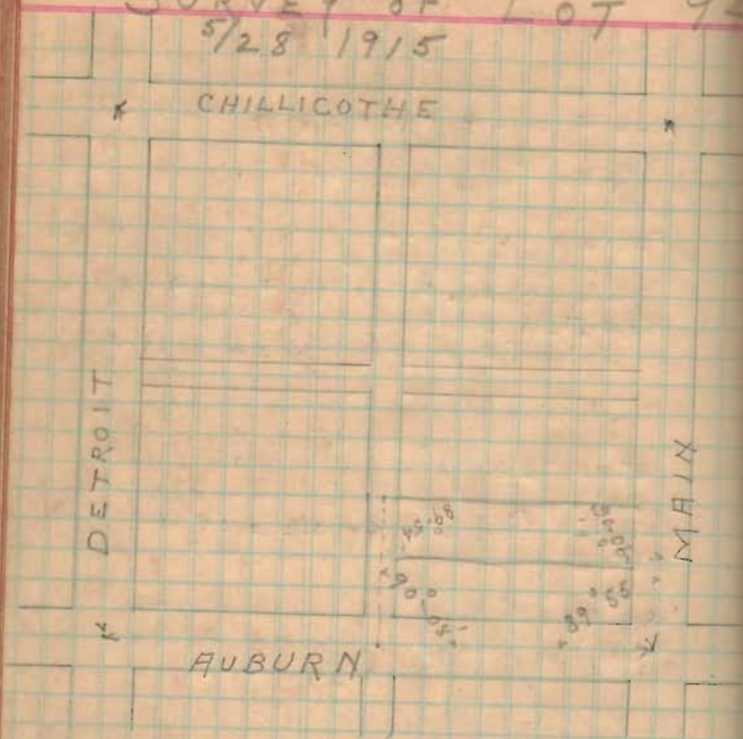 SURVEY OF LOT
5/28 1915
CHILLICOTHE
DETROIT
MAIN
89-54
89° 56
AUBURN